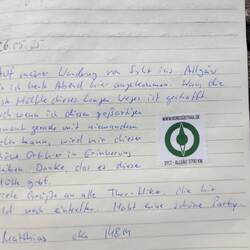 26.05.25
Auf meiner Wanderung von Sylt ins Allgäu
bin ich heute Abend hier angekommen. Wow, die
Hälfte dieses langen Weges ist geschafft.
wenn ich diesen großartigen
Moment gerade mit niemandem
teilen kann, wird mir dieser
schöne Ort hier in Erinnerung
bleiben. Danke, das es diese
Hütte gibt.
Viele Grüße an alle Thru-Hiker, die hier
noch eintreffen. Habt eine schöne Party.
Matthias aka
WWW.NORDSUEDTRAIL.DE
SYLT - ALLGÄU 3700 KM